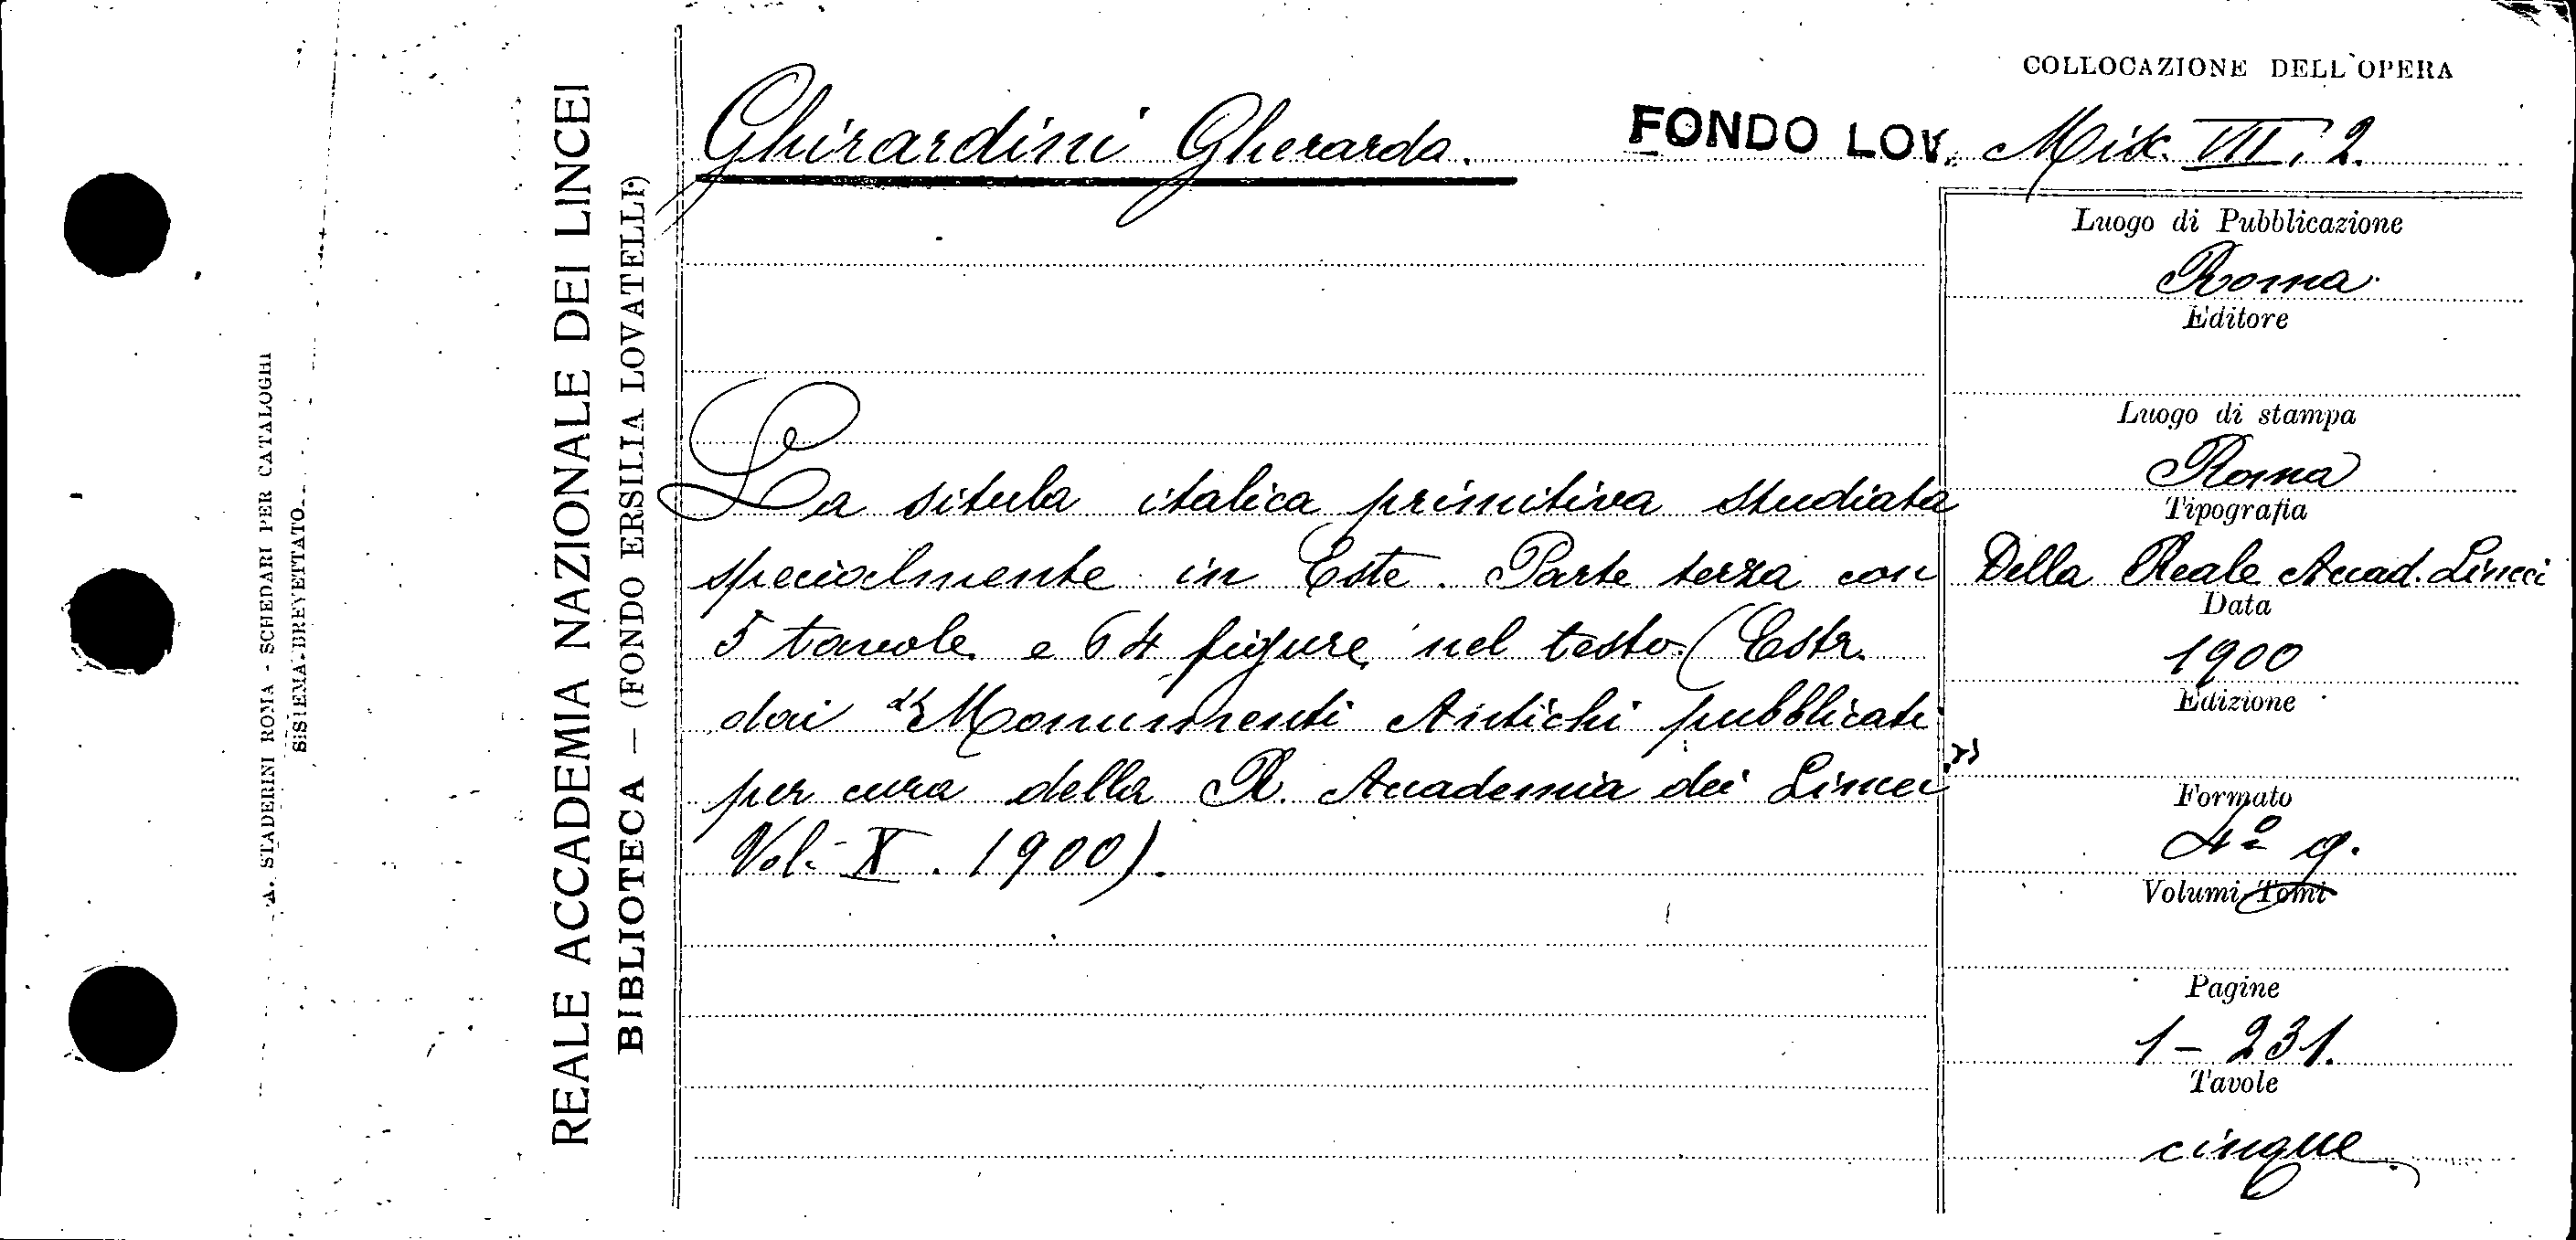 COLLOCAZIONE DELL'OPERA
Ghirardini Gherarda.
FONDO LOV. Misc. VII, 2.
La situla italica primitiva studiata
specialmente in Este. Parte terza con
5 tavole e 64 figure nel testo (Estr.
dai "Monumenti Antichi pubblicati
per cura della R. Accademia dei Lincei"
Vol. X. 1900).
Luogo di Pubblicazione
Roma
Editore
Luogo di stampa
Roma
Tipografia
Della Reale Accad. Lincei
Data
1900
Edizione
Formato
4º g.
Volumi, Tomi
Pagine
1 - 231.
Tavole
cinque
REALE ACCADEMIA NAZIONALE DEI LINCEI
BIBLIOTECA — (FONDO ERSILIA LOVATELLI)
A. STADERINI ROMA - SCHEDARI PER CATALOGHI
SISTEMA BREVETTATO